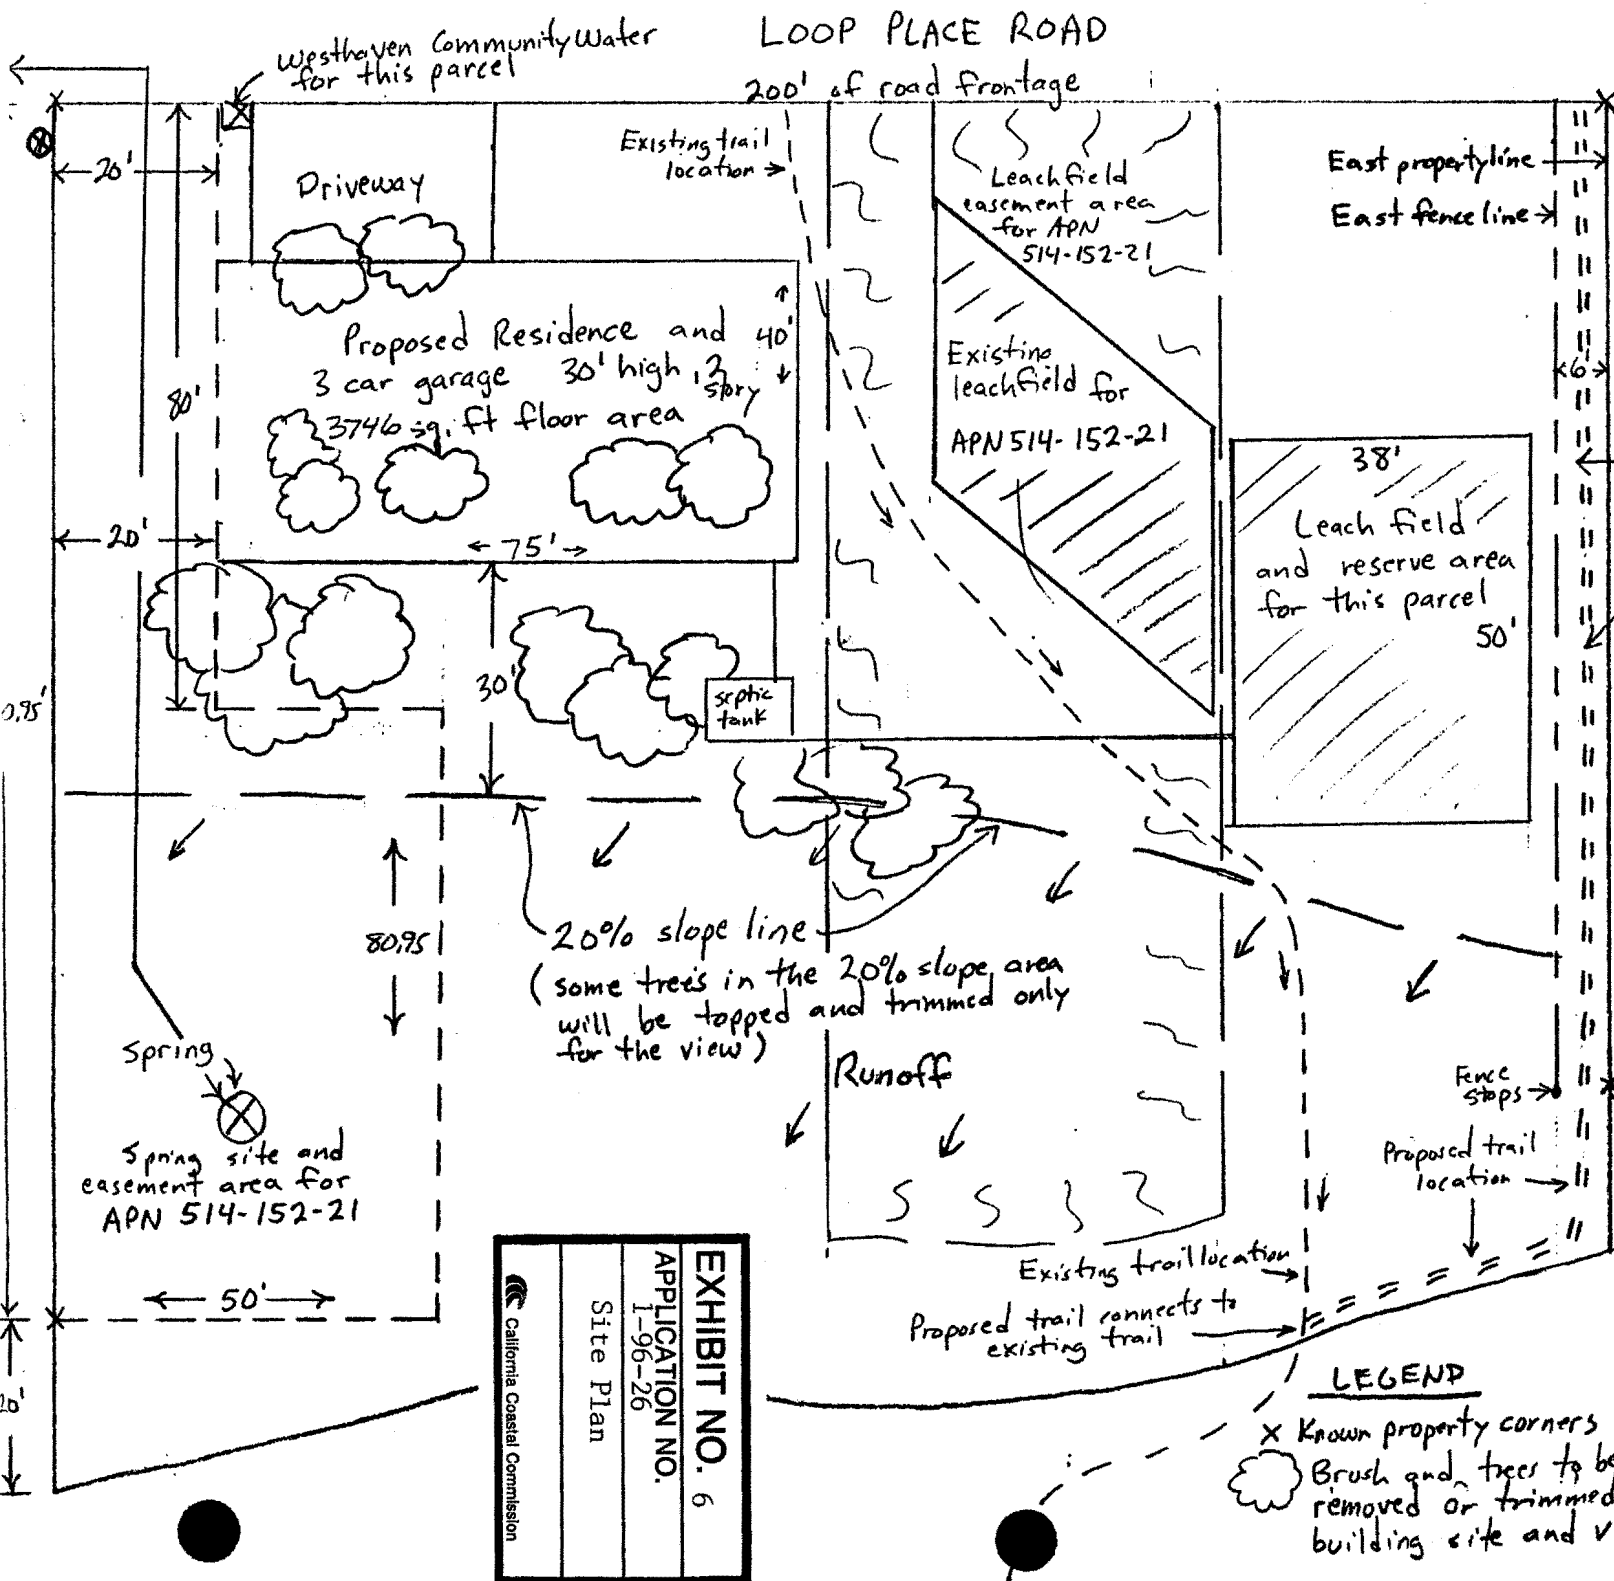 LOOP PLACE ROAD
Westhaven Community Water
for this parcel
200' of road frontage
20'
Driveway
Existing trail
location
Leachfield
easement area
for APN
514-152-21
East property line
East fence line
80'
Proposed Residence and
3 car garage 30' high, 2
story
3746 sq. ft floor area
40'
Existing
leachfield for
APN 514-152-21
6
38'
Leach field
and reserve area
for this parcel
50'
20'
75'
30'
septic
tank
0.95'
80.95
20% slope line
(some trees in the 20% slope area
will be topped and trimmed only
for the view)
Runoff
Spring
Spring site and
easement area for
APN 514-152-21
50'
Fence
stops
Proposed trail
location
Existing trail location
Proposed trail connects to
existing trail
20'
EXHIBIT NO. 6
APPLICATION NO.
1-96-26
Site Plan
California Coastal Commission
LEGEND
X Known property corners
Brush and trees to be
removed or trimmed
building site and v